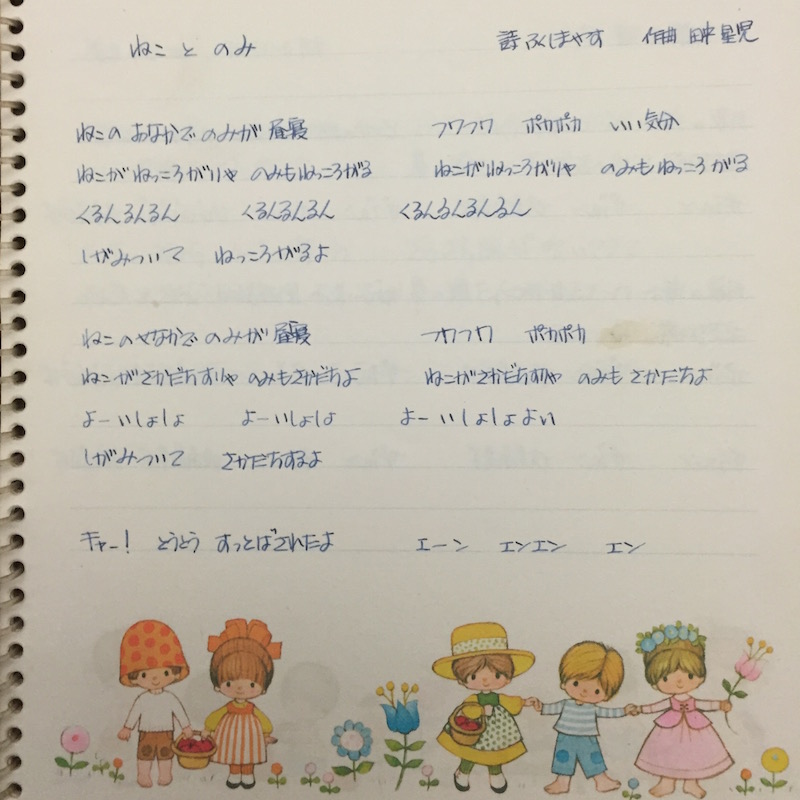 ねことのみ　　詩 ふくしまやす　作曲 田中星児
ねこの おなかで のみが 昼寝　　フワフワ　ポカポカ　いい気分
ねこがねっころがりゃ　のみもねっころがる　　ねこがねっころがりゃ　のみもねっころがる
くるんるんるん　くるんるんるん　くるんるんるんるん
しがみついて　ねっころがるよ
ねこのせなかで のみが 昼寝　　フワフワ　ポカポカ
ねこがさかだちすりゃ　のみもさかだちよ　　ねこがさかだちすりゃ　のみも さかだちよ
よーいしょしょ　よーいしょしょ　よーいしょしょよい
しがみついて　さかだちするよ
キャー！　とうとう すっとばされたよ　　エーン　エンエン　エン